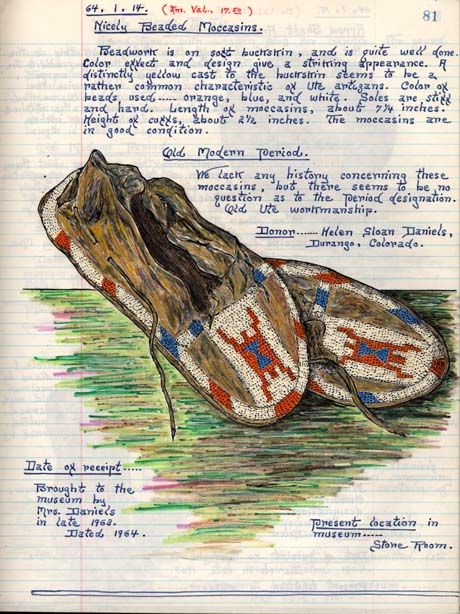 64. 1. 14. (Ins. Val., 17.50)
81
Nicely Beaded Moccasins.
Beadwork is on soft buckskin, and is quite well done.
Color effect and design give a striking appearance. A
distinctly yellow cast to the buckskin seems to be a
rather common characteristic of Ute artizans. Color of
beads used ..... orange, blue, and white. Soles are stiff
and hard. Length of moccasins, about 7¼ inches.
Height of cuffs, about 2½ inches. The moccasins are
in good condition.
Old Modern Period.
We lack any history concerning these
moccasins, but there seems to be no
question as to the period designation.
Old Ute workmanship.
Donor ....... Helen Sloan Daniels,
Durango, Colorado.
Date of receipt .....
Brought to the
museum by
Mrs. Daniels
in late 1963.
Dated 1964.
Present location in
museum .....
Store Room.